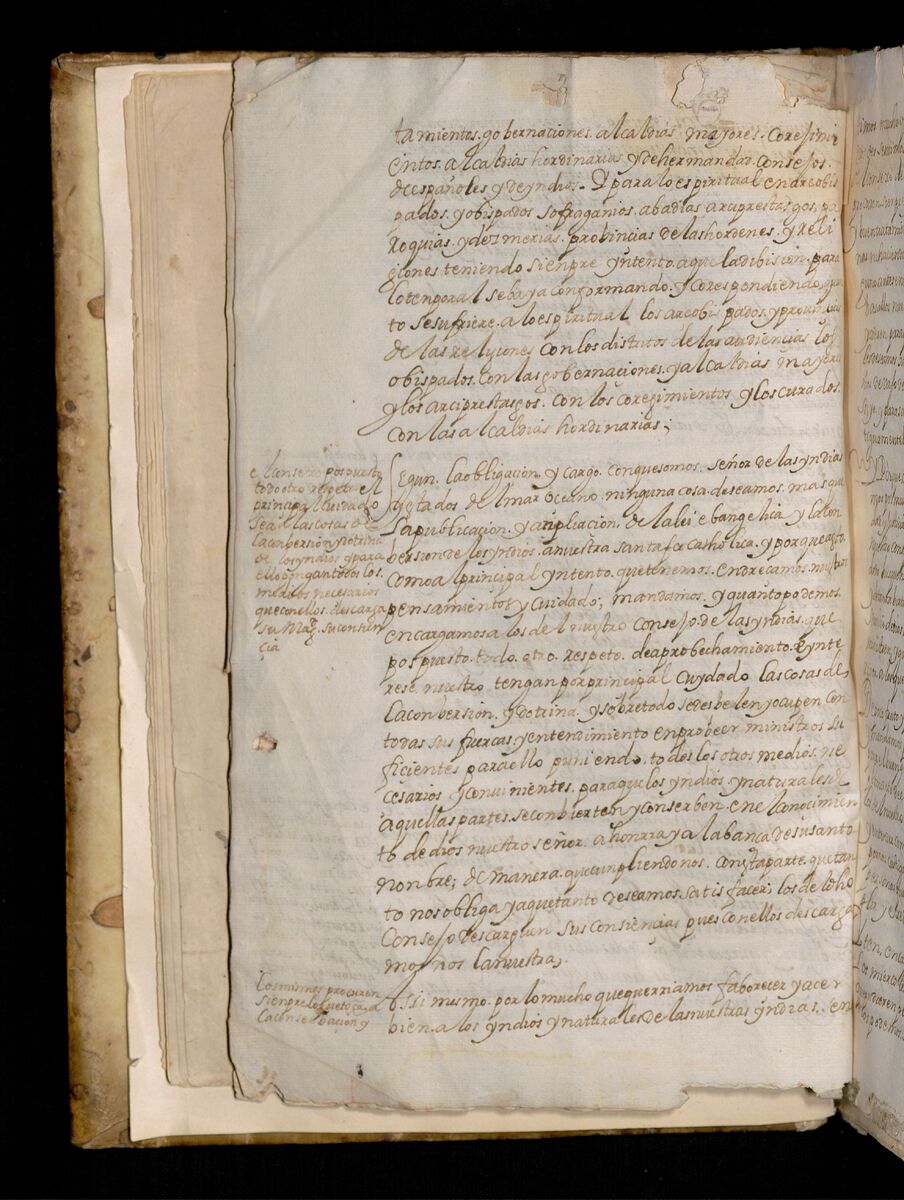 tamientos. gobernaciones. alcaldias mayores. Corejimi
entos. alcaldias hordinarias y dehermandad. Consejos.
de españoles y de yndios. Y para lo espiritual en arcobis
pados. y obispados sofraganios. abadias. arciprestasgos. pa
Roquias. y dezmerias. probincias de las hordenes. y reli
giones. teniendo sienpre yntento. a que la dibision. para
lo tenporal se baya conformando. y corespondiendo. quan
to se sufriere. a lo espiritual los arcobispados. y provincias
de las reliyiones con los distritos de las audiencias. los
obispados. con las gobernaciones. y alcaldias mayores
y los arciprestasgos. con los corejimientos y los curados.
con las alcaldias hordinarias;
el consejo pospuesto
todo otro respeto el
principal cuidado
sea de las cosas de
la conbersion y dotrina
de los yndios y para
ello pongan todos los
medios necesarios
que con ellos. descarga
su Magd. su consien
çia
Segun. la obligacion. y cargo. con que somos. señor de las yndias
y estados del mar oceano. ninguna cosa. deseamos. mas que
la publicacion. y anpliacion. de la lei ebangelica y la con
bersion de los yndios. a nuestra santa fee catholica. y por que a esto
como a l principal yntento. que tenemos. endreçamos. nuestros
pensamientos y cuidado; mandamos. y quanto podemos.
encargamos a los del nuestro consejo. de las yndias. que
pospuesto. todo. otro. respeto. de aprobechamiento. e ynte
rese nuestro. tengan por principal cuydado las cosas de
la conbersion. y dotrina. y sobre todo se desbelen y ocupen con
todas sus fuerças. y entendimiento en probeer ministros su
ficientes para ello puniendo. todos los otros medios. ne
cesarios y convinientes. para que los yndios y naturales de
aquellas partes. se conbierten y conserben. en el conocimien
to de dios nuestro señor. a honrra y alabança de su santo
nonbre; de manera. que cunpliendo nos. con esta parte. que tan
to nos obliga y a que tanto deseamos. satisfacer; los del dho
consejo descarguen sus consiencias pues con ellos descarga
mos nos la nuestra;
Los mismos procuren
sienpre lo que toca a
la conserbacion y
Asi mismo. por lo mucho que querriamos faborecer y acer
bien. a los yndios y naturales de las nuestras yndias.